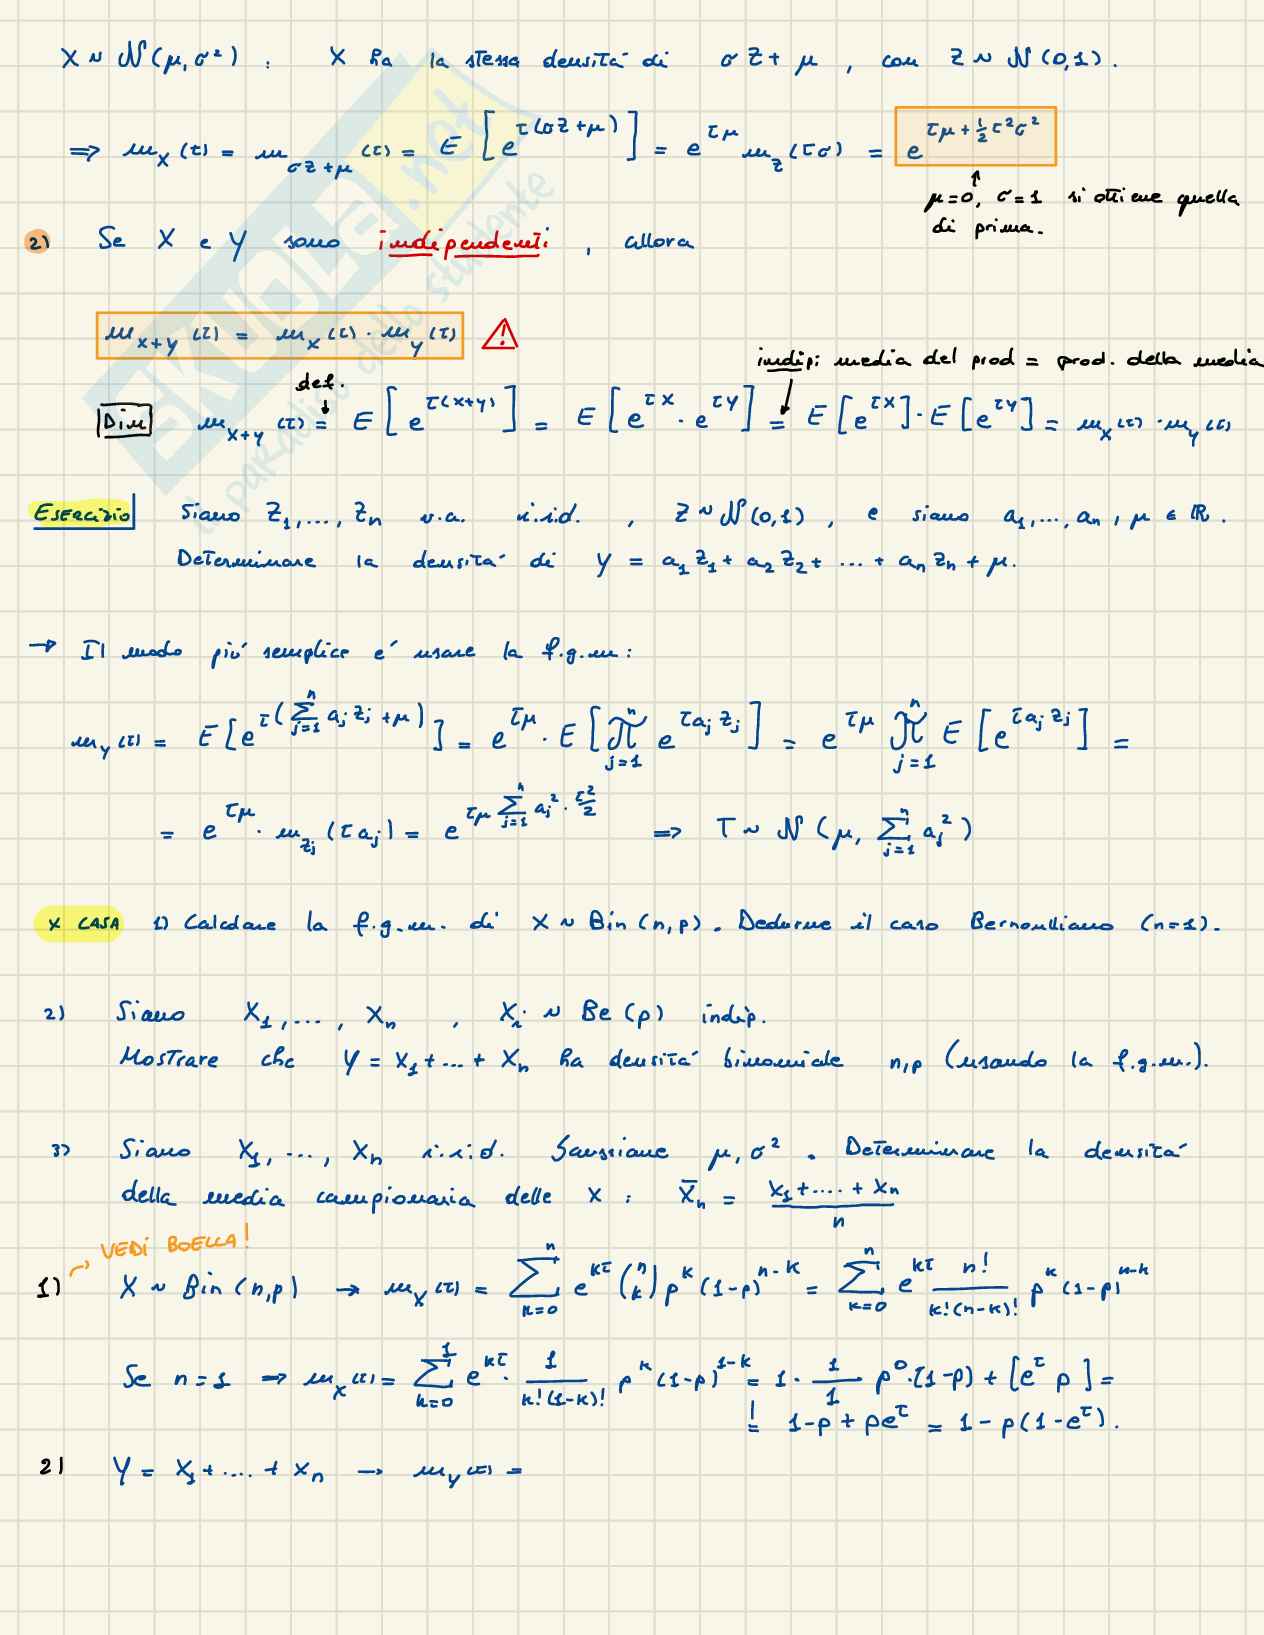 X ~ N(μ, σ²) : X ha la stessa densitá di σZ + μ , con Z ~ N(0,1).
⇒ m_X(τ) = m_{σZ+μ}(τ) = E[e^{τ(σZ+μ)}] = e^{τμ} m_Z(τσ) = e^{τμ + ½τ²σ²}
μ=0, σ=1 si ottiene quella
di prima.
2) Se X e Y sono indipendenti , allora
m_{X+Y}(τ) = m_X(τ) · m_Y(τ) ⚠
indip: media del prod = prod. della media
def.
Dim m_{X+Y}(τ) = E[e^{τ(X+Y)}] = E[e^{τX} · e^{τY}] = E[e^{τX}] · E[e^{τY}] = m_X(τ) · m_Y(τ)
ESERCIZIO Siano Z₁,...,Zₙ v.a. i.i.d. , Z ~ N(0,1) , e siano a₁,...,aₙ, μ ∈ ℝ.
Determinare la densitá di Y = a₁Z₁ + a₂Z₂ + ... + aₙZₙ + μ.
→ Il modo piú semplice é usare la f.g.m:
m_Y(τ) = E[e^{τ(∑_{j=1}^{n} a_j Z_j + μ)}] = e^{τμ} · E[∏_{j=1}^{n} e^{τa_j Z_j}] = e^{τμ} ∏_{j=1}^{n} E[e^{τa_j Z_j}] =
= e^{τμ} · m_{Z_j}(τa_j) = e^{τμ ∑_{j=1}^{n} a_j² · τ²/2} ⇒ T ~ N(μ, ∑_{j=1}^{n} a_j²)
X CASA 1) Calcolare la f.g.m. di X ~ Bin(n,p). Dedurne il caso Bernoulliano (n=1).
2) Siano X₁,..., Xₙ , X_i ~ Be(p) indip.
Mostrare che Y = X₁ + ... + Xₙ ha densitá binomiale n,p (usando la f.g.m.).
3) Siano X₁, ..., Xₙ i.i.d. Gaussiane μ, σ². Determinare la densitá
della media campionaria delle X : X̄ₙ = (X₁ + .... + Xₙ)/n
VEDI BOELLA!
1) X ~ Bin(n,p) → m_X(τ) = ∑_{k=0}^{n} e^{kτ} (n k) p^k (1-p)^{n-k} = ∑_{k=0}^{n} e^{kτ} n!/(k!(n-k)!) p^k (1-p)^{n-k}
Se n=1 ⇒ m_X(τ) = ∑_{k=0}^{1} e^{kτ} · 1/(k!(1-k)!) p^k (1-p)^{1-k} = 1 · 1/1 p⁰ · (1-p) + [e^τ p] =
= 1-p + pe^τ = 1 - p(1-e^τ).
2) Y = X₁ + .... + Xₙ → m_Y(τ) =
SKUOLA.net
il paradiso dello studente